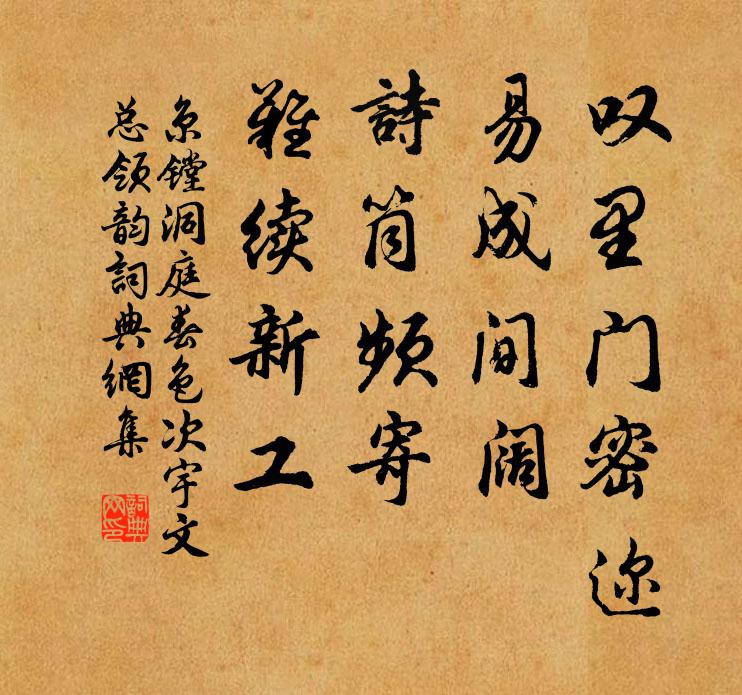 叹里门密迩
易成间阔
詩筒频寄
难续新工
京镗洞庭春色次宇文
总领韵詞典網集
詞典網印